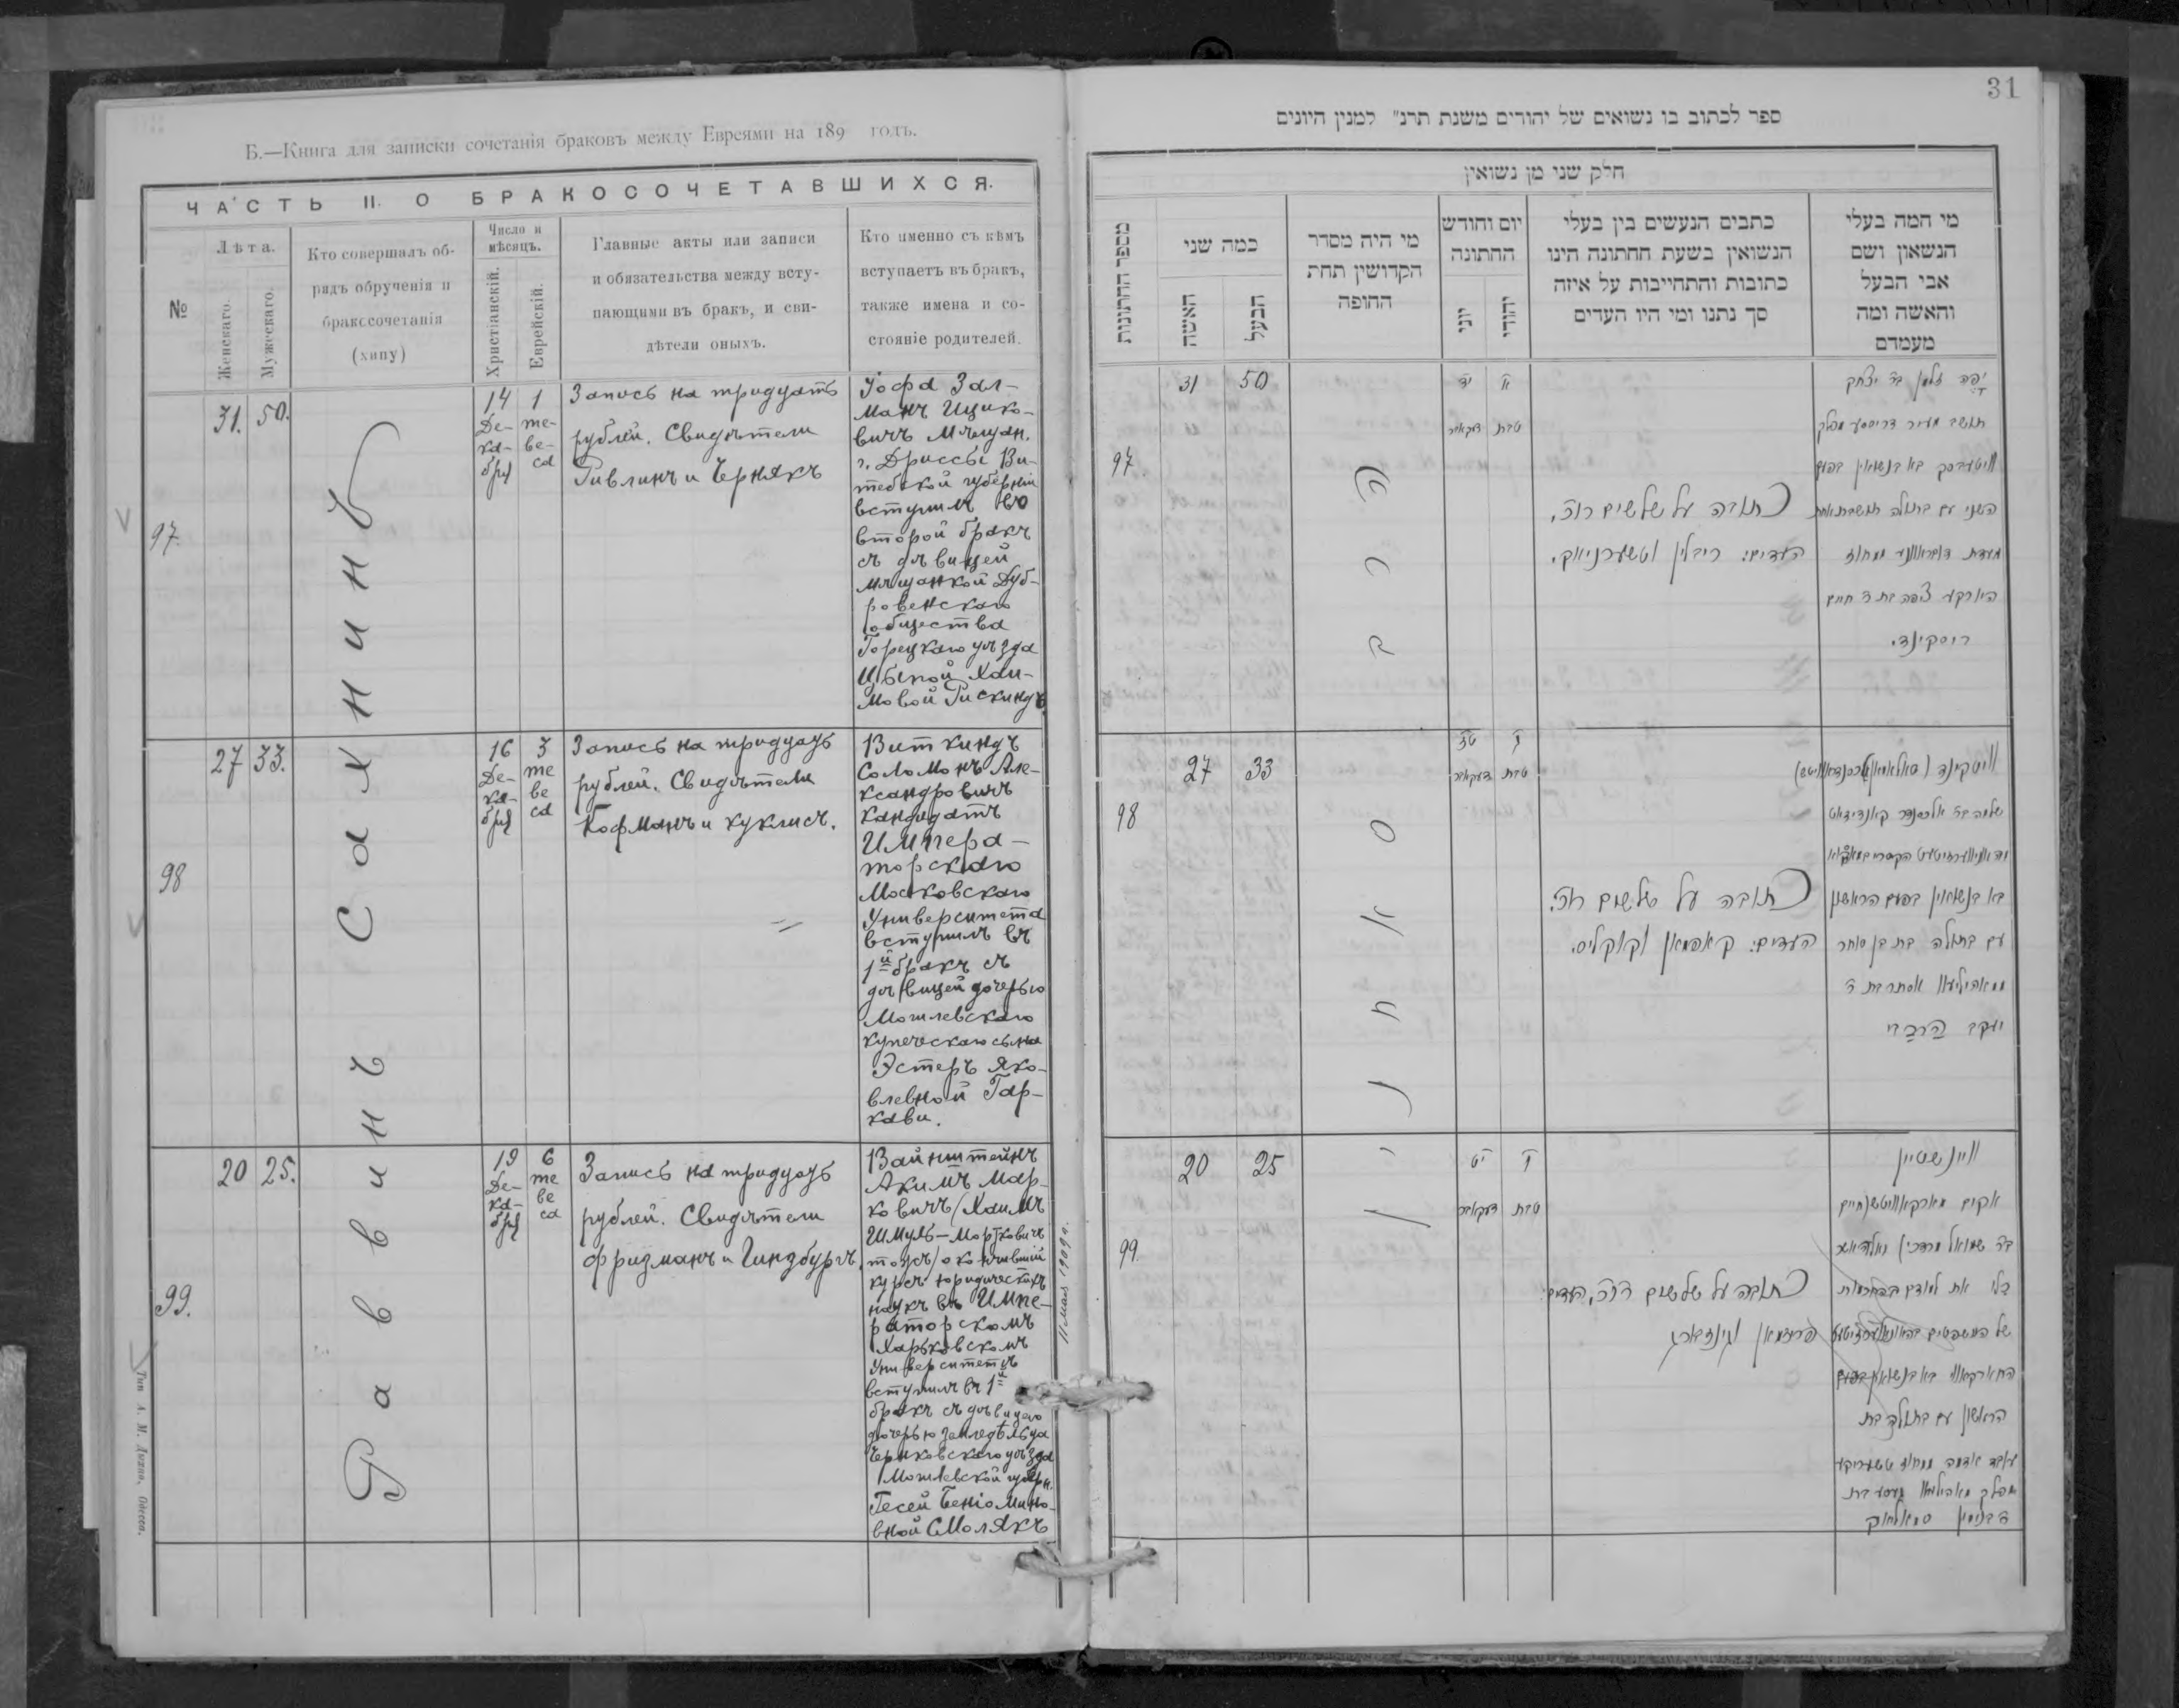 Б.—Книга для записки сочетанія браковъ между Евреями на 189 годъ.
ЧАСТЬ II. О БРАКОСОЧЕТАВШИХСЯ.
№
Лѣта.
Женскаго.
Мужескаго.
Кто совершалъ об-
рядъ обрученія и
бракссочетанія
(хипу)
Число и
мѣсяцъ.
Христіанскій.
Еврейскій.
Главные акты или записи
и обязательства между всту-
пающими въ бракъ, и сви-
дѣтели оныхъ.
Кто именно съ кѣмъ
вступаетъ въ бракъ,
также имена и со-
стояніе родителей.
Раввинъ Сахнинъ
97.
31. 50.
14 1
Де- те-
ка- ве-
бря са
Запись на тридцать
рублей. Свидѣтели
Ривлинъ и Чернякъ
Іофа Зал-
манъ Ицико-
вичъ Мѣщан.
г. Дриссы Ви-
тебской губерніи
вступилъ во
второй бракъ
съ дѣвицей
мѣщанкой Дуб-
ровенскаго
общества
Горецкаго уѣзда
Цыпой Хаи-
мовой Рискиндъ.
98
27 33.
16 3
Де- те
ка- ве
бря са
Запись на тридцать
рублей. Свидѣтели
Кофманъ и Куклисъ.
Виткиндъ
Соломонъ Але-
ксандровичъ
кандидатъ
Импера-
торскаго
Московскаго
Университета
вступилъ въ
1й бракъ съ
дѣвицей дочерью
Могилевскаго
купеческаго сына
Эстеръ Яко-
влевной Гар-
кави.
99.
20 25.
19 6
Де- те
ка- ве
бря са
Запись на тридцать
рублей. Свидѣтели
Фризманъ и Гинзбургъ.
Вайнштейнъ
Акимъ Мар-
ковичъ (Хаимъ
Шмуль-Мортковичъ
тожъ) окончившій
курсъ юридическихъ
наукъ въ Импе-
раторскомъ
Харьковскомъ
Университетѣ
вступилъ въ 1й
бракъ съ дѣвицею
дочерью земледѣльца
Чериковскаго уѣзда
Могилевской губерн.
Гесей Беніомино-
вной Смолякъ
11 мая 1909 г.
Тип. А. М. Дыхно, Одесса.
31
ספר לכתוב בו נשואים של יהודים משנת תרנ״ למנין היונים
חלק שני מן נשואין
מספר החתונות
כמה שני
האשה
הבעל
מי היה מסדר
הקדושין תחת
החופה
יום וחודש
החתונה
יוני
יהודי
כתבים הנעשים בין בעלי
הנשואין בשעת החתונה הינו
כתובות והתחייבות על איזה
סך נתנו ומי היו העדים
מי המה בעלי
הנשואין ושם
אבי הבעל
והאשה ומה
מעמדם
הרב סאחנין
97.
31 50
יד א
דעקאבר טבת
כתובה על שלשים רוב׳,
העדים: ריבלין וטשערניאק.
יָפֶה זלמן בר יצחק
תושב מעיר דריססע מפלך
וויטעבסק בא בנשואין בפעם
השני עם בתולה תושבת
מעדת דובראוונע ממחוז
הארקע ציפה בת ר׳ חיים
ריסקינד.
98
27 33
טז ג
דעקאבר טבת
כתובה על שלשים רוב׳.
העדים: קאפמאן וקוקליס.
וויטקינד (סאלאמאן אלכסנדראוויטש)
שלמה בר אלכסנדר קאנדידאט
בא בנשואין בפעם הראשון
עם בתולה בת בן סוחר
ממאהיליעוו אסתר בת ר׳
יעקב הַרכַבי
99.
20 25
יט ו
דעקאבר טבת
כתובה על שלשים רוב׳, העדים:
פריזמאן וגינזבורג
וויינשטיין
אקים מארקאוויטש (חיים
בר שמואל מרדכי)
של המשפטים בהאוניווערזיטעט
הראשון עם בתולה בת
עובד אדמה ממחוז טשעריקע
מפלך מאהילעוו געסע בת
ר׳ בנימין סמאליאק